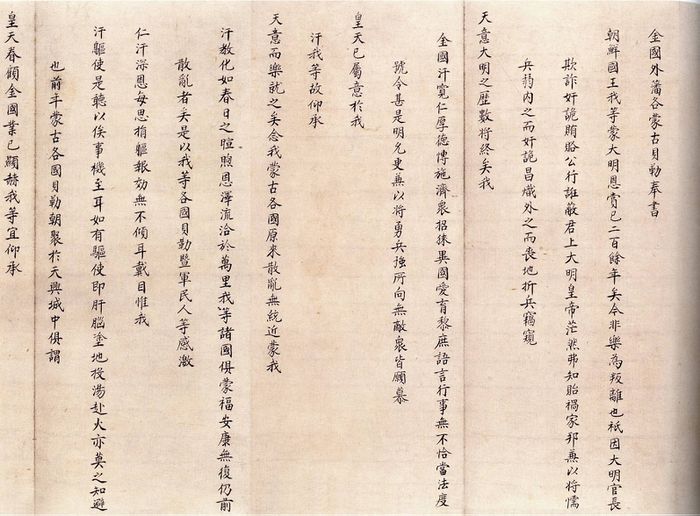 金國外藩各蒙古貝勒奉書
朝鮮國王我等蒙大明恩賚已二百餘年矣今非樂為叛離也祇因大明官長
欺詐奸詭賄賂公行誑蔽君上大明皇帝茫然弗知貽禍家邦兼以將懦
兵弱內之而奸詭昌熾外之而喪地折兵竊窺
天意大明之歷數將終矣我
金國汗寬仁厚德博施濟眾招徠異國愛育黎庶語言行事無不恰當法度
號令甚是明允更兼以將勇兵強所向無敵眾皆願慕
皇天已屬意於我
汗我等故仰承
天意而樂就之矣念我蒙古各國原來散亂無統近蒙我
汗教化如春日之暄煦恩澤流洽於萬里我等諸國俱蒙福安康無復仍前
散亂者矣是以我等各國貝勒暨軍民人等感激
仁汗深恩每思捐軀報効無不傾耳戴目惟我
汗驅使是聽以俟事機至耳如有驅使即肝腦塗地投湯赴火亦莫之知避
也前年蒙古各國貝勒朝聚於天興城中俱謂
皇天眷顧金國業已顯赫我等宜仰承